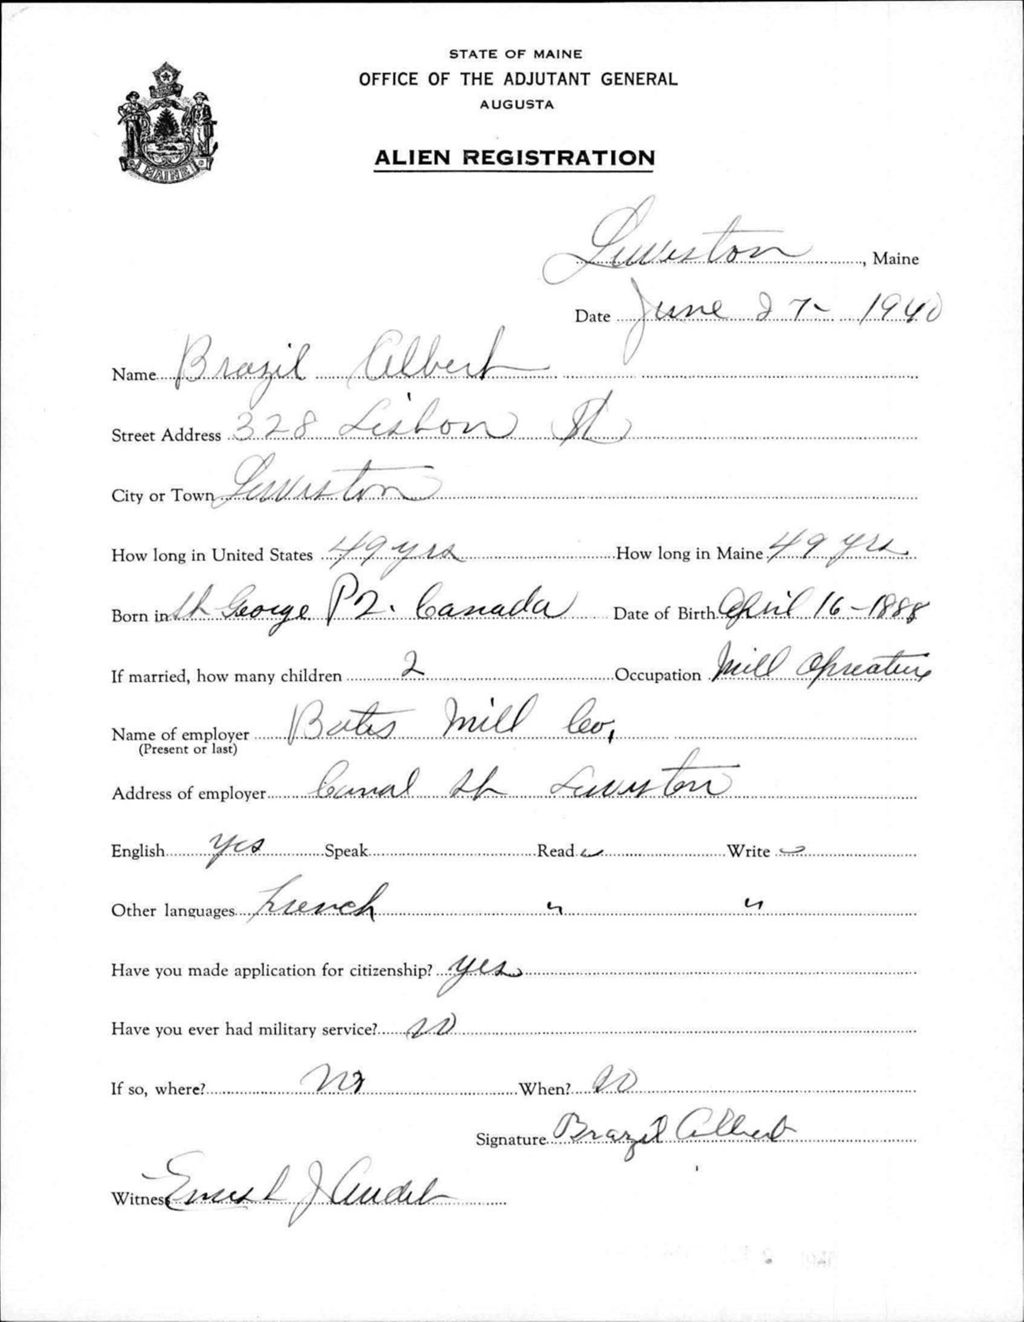 STATE OF MAINE
OFFICE OF THE ADJUTANT GENERAL
AUGUSTA
MAINE
ALIEN REGISTRATION
Lewiston, Maine
Date June 27- 1940
Name Brazil Albert
Street Address 328 Lisbon St
City or Town Lewiston
How long in United States 49 yrs How long in Maine 49 yrs
Born in St George P2. Canada Date of Birth April 16-1888
If married, how many children 2 Occupation Mill Operative
Name of employer Bates Mill Co,
(Present or last)
Address of employer Canal St Lewiston
English yes Speak Read ✓ Write ✓
Other languages French " "
Have you made application for citizenship? yes
Have you ever had military service? no
If so, where? no When? no
Signature Brazil Albert
Witness Ernest J